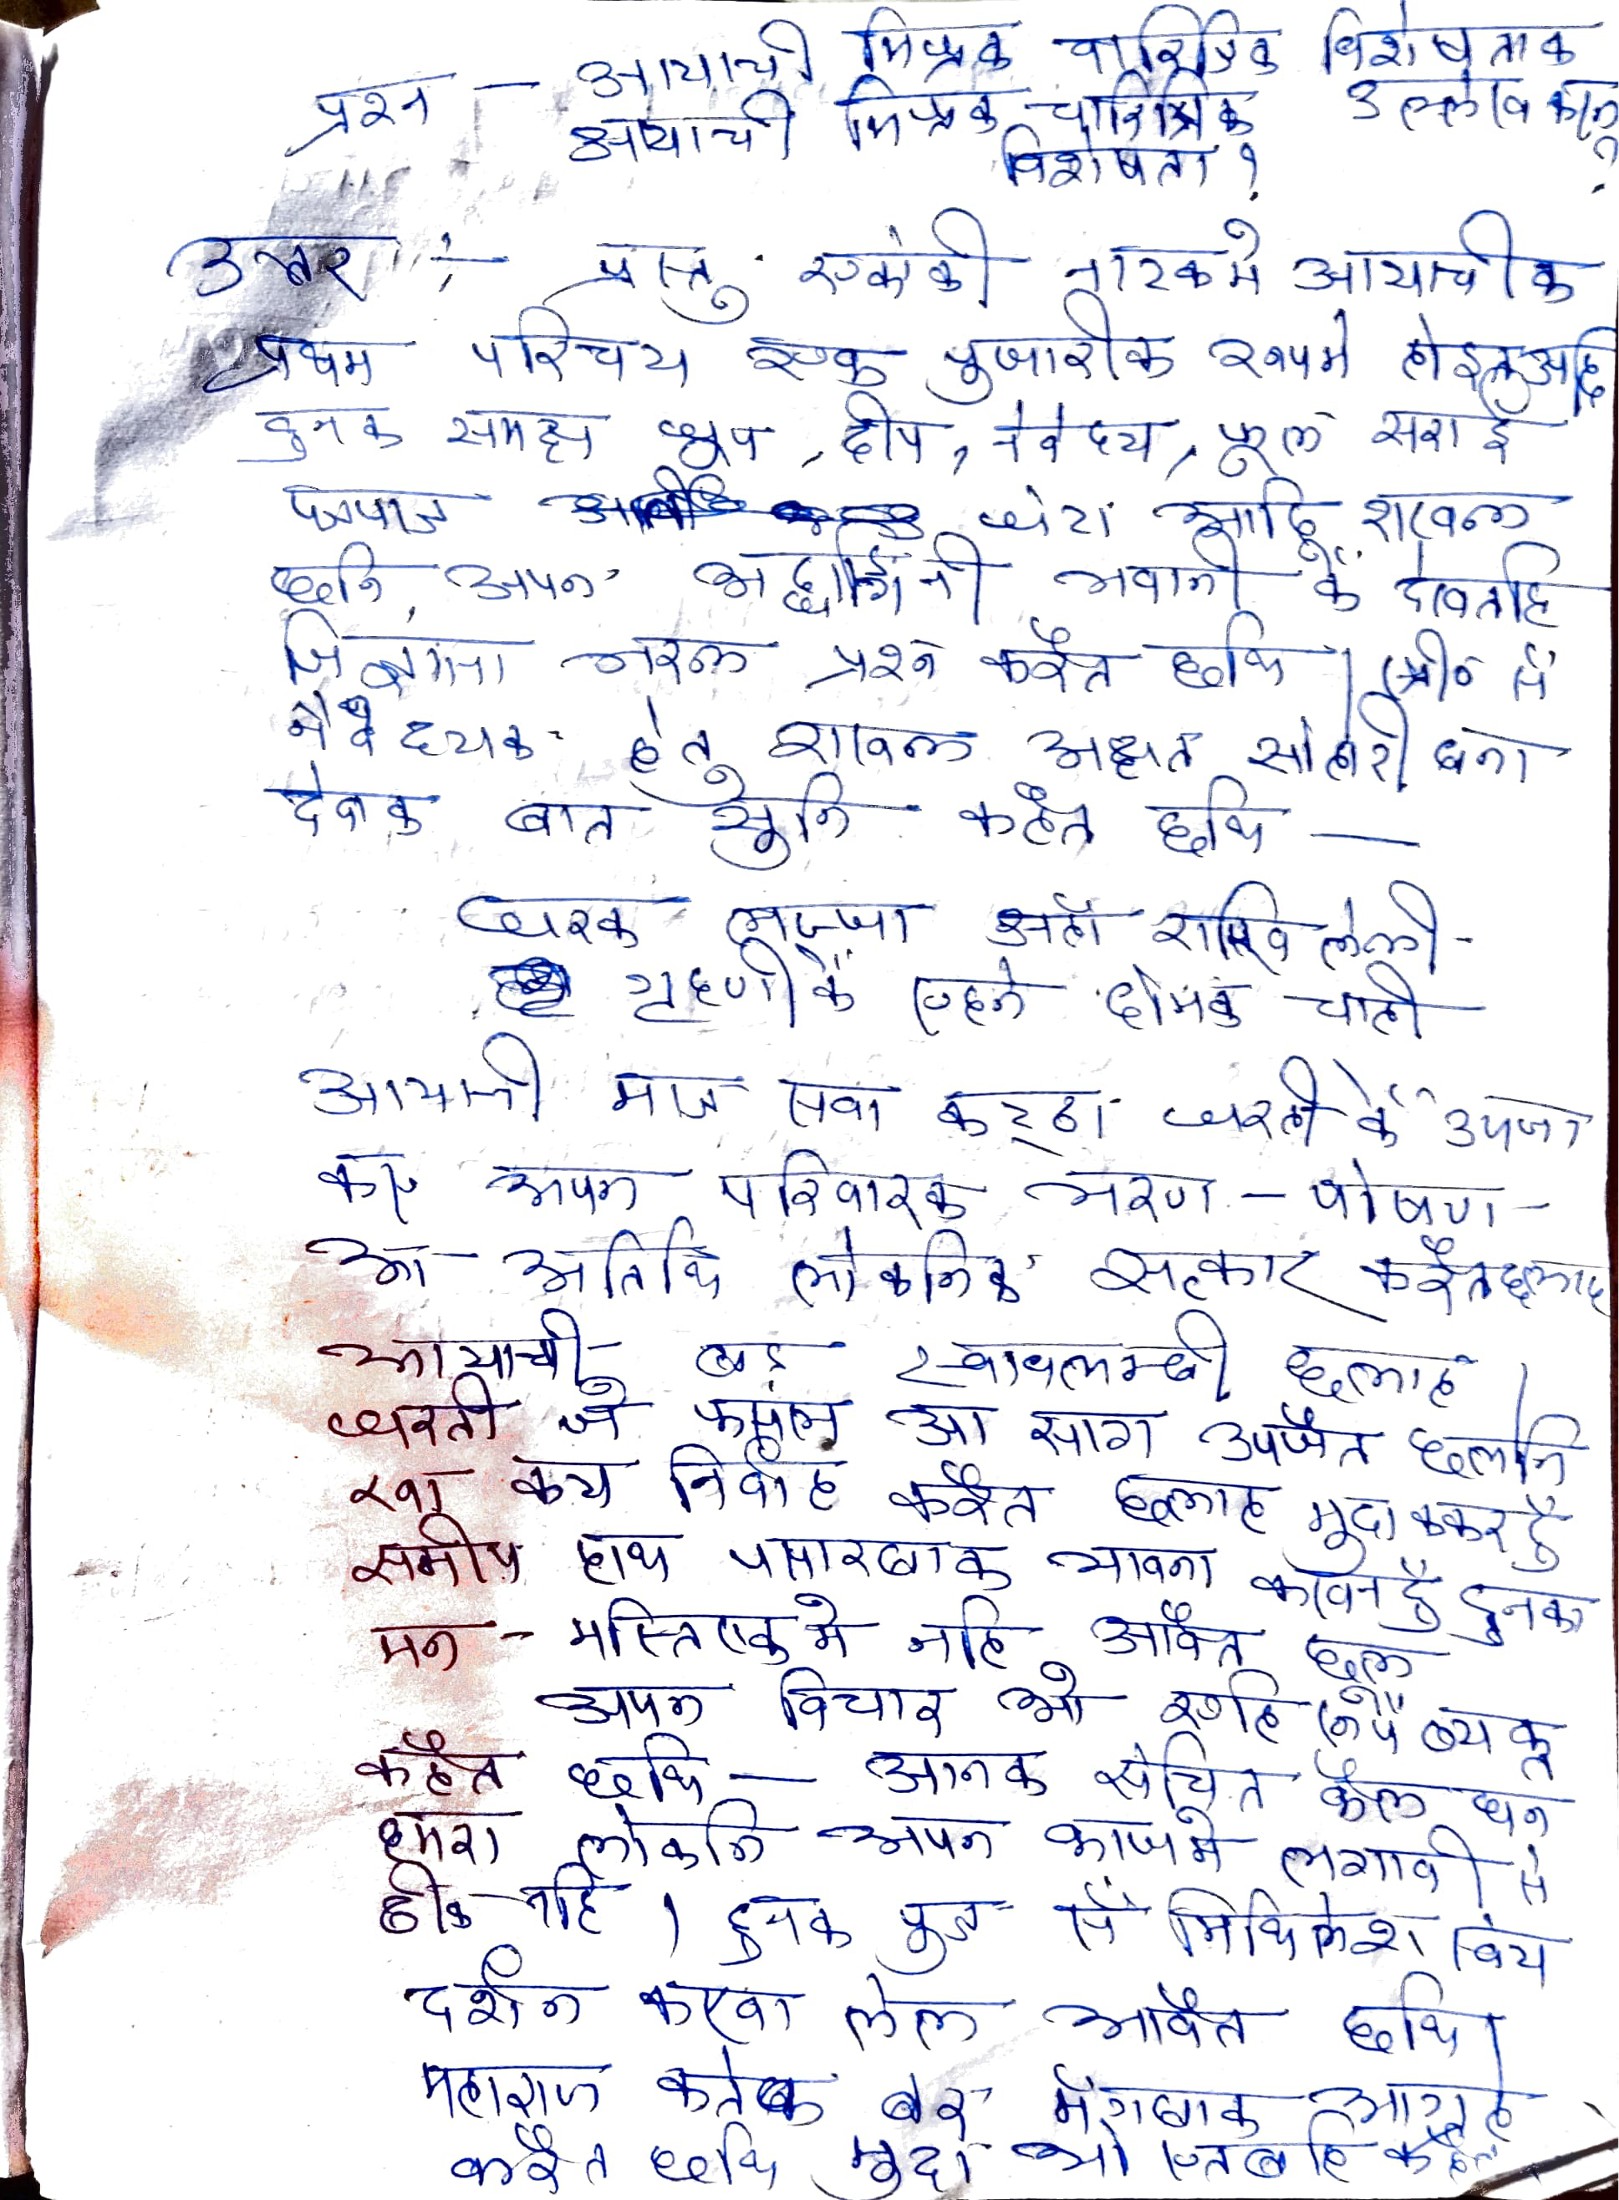 प्रश्न - आयाची मिश्रक चारित्रिक विशेषताक
उल्लेख करू?
अयाची मिश्रक चारित्रिक
विशेषता?
उत्तर :- प्रस्तु एकांकी नाटकमे आयाचीक
प्रथम परिचय एक पुजारीक रूपमे होइत अछि
हुनक समक्ष धूप, दीप, नैवेद्य, फूल सराई
घंटा आदि राखल
छनि, अपन अर्द्धांगिनी भवानी कें देखतहि
जिज्ञासा भरल प्रश्न करैत छथि। स्त्री० सँ
नैवेद्यक हेतु राखल अक्षत सोहारी बना
देबाक बात सुनि कहैत छथि —
घरक लज्जा अहाँ राखि लेलौं -
गृहणी कें एहने होमक चाही
आयाची मात्र सवा कट्ठा धरती कें उपजा
कए अपन परिवारक भरण - पोषण -
आ अतिथि लोकनिक सत्कार करैत छलाह
आयाची बड़ स्वावलम्बी छलाह।
धरती जे फसल आ साग उपजैत छलनि
खा कय निर्वाह करैत छलाह मुदा ककरहुँ
समीप हाथ पसारबाक भावना कखनहुँ हुनका
मन - मस्तिष्क मे नहि अबैत छल
अपन विचार ओ एहि रूपें व्यक्त
कहैत छथि — आनक संचित कैल धन
हमरा लोकनि अपन काजमे लगावी से
ठीक नहि। हुनक पुत्र सँ मिथिलेश
दर्शन करबा लेल अबैत छथि।
महाराज कतेक बेर मँगबाक आग्रह
करैत छथि मुदा ओ एतबहि कहैत